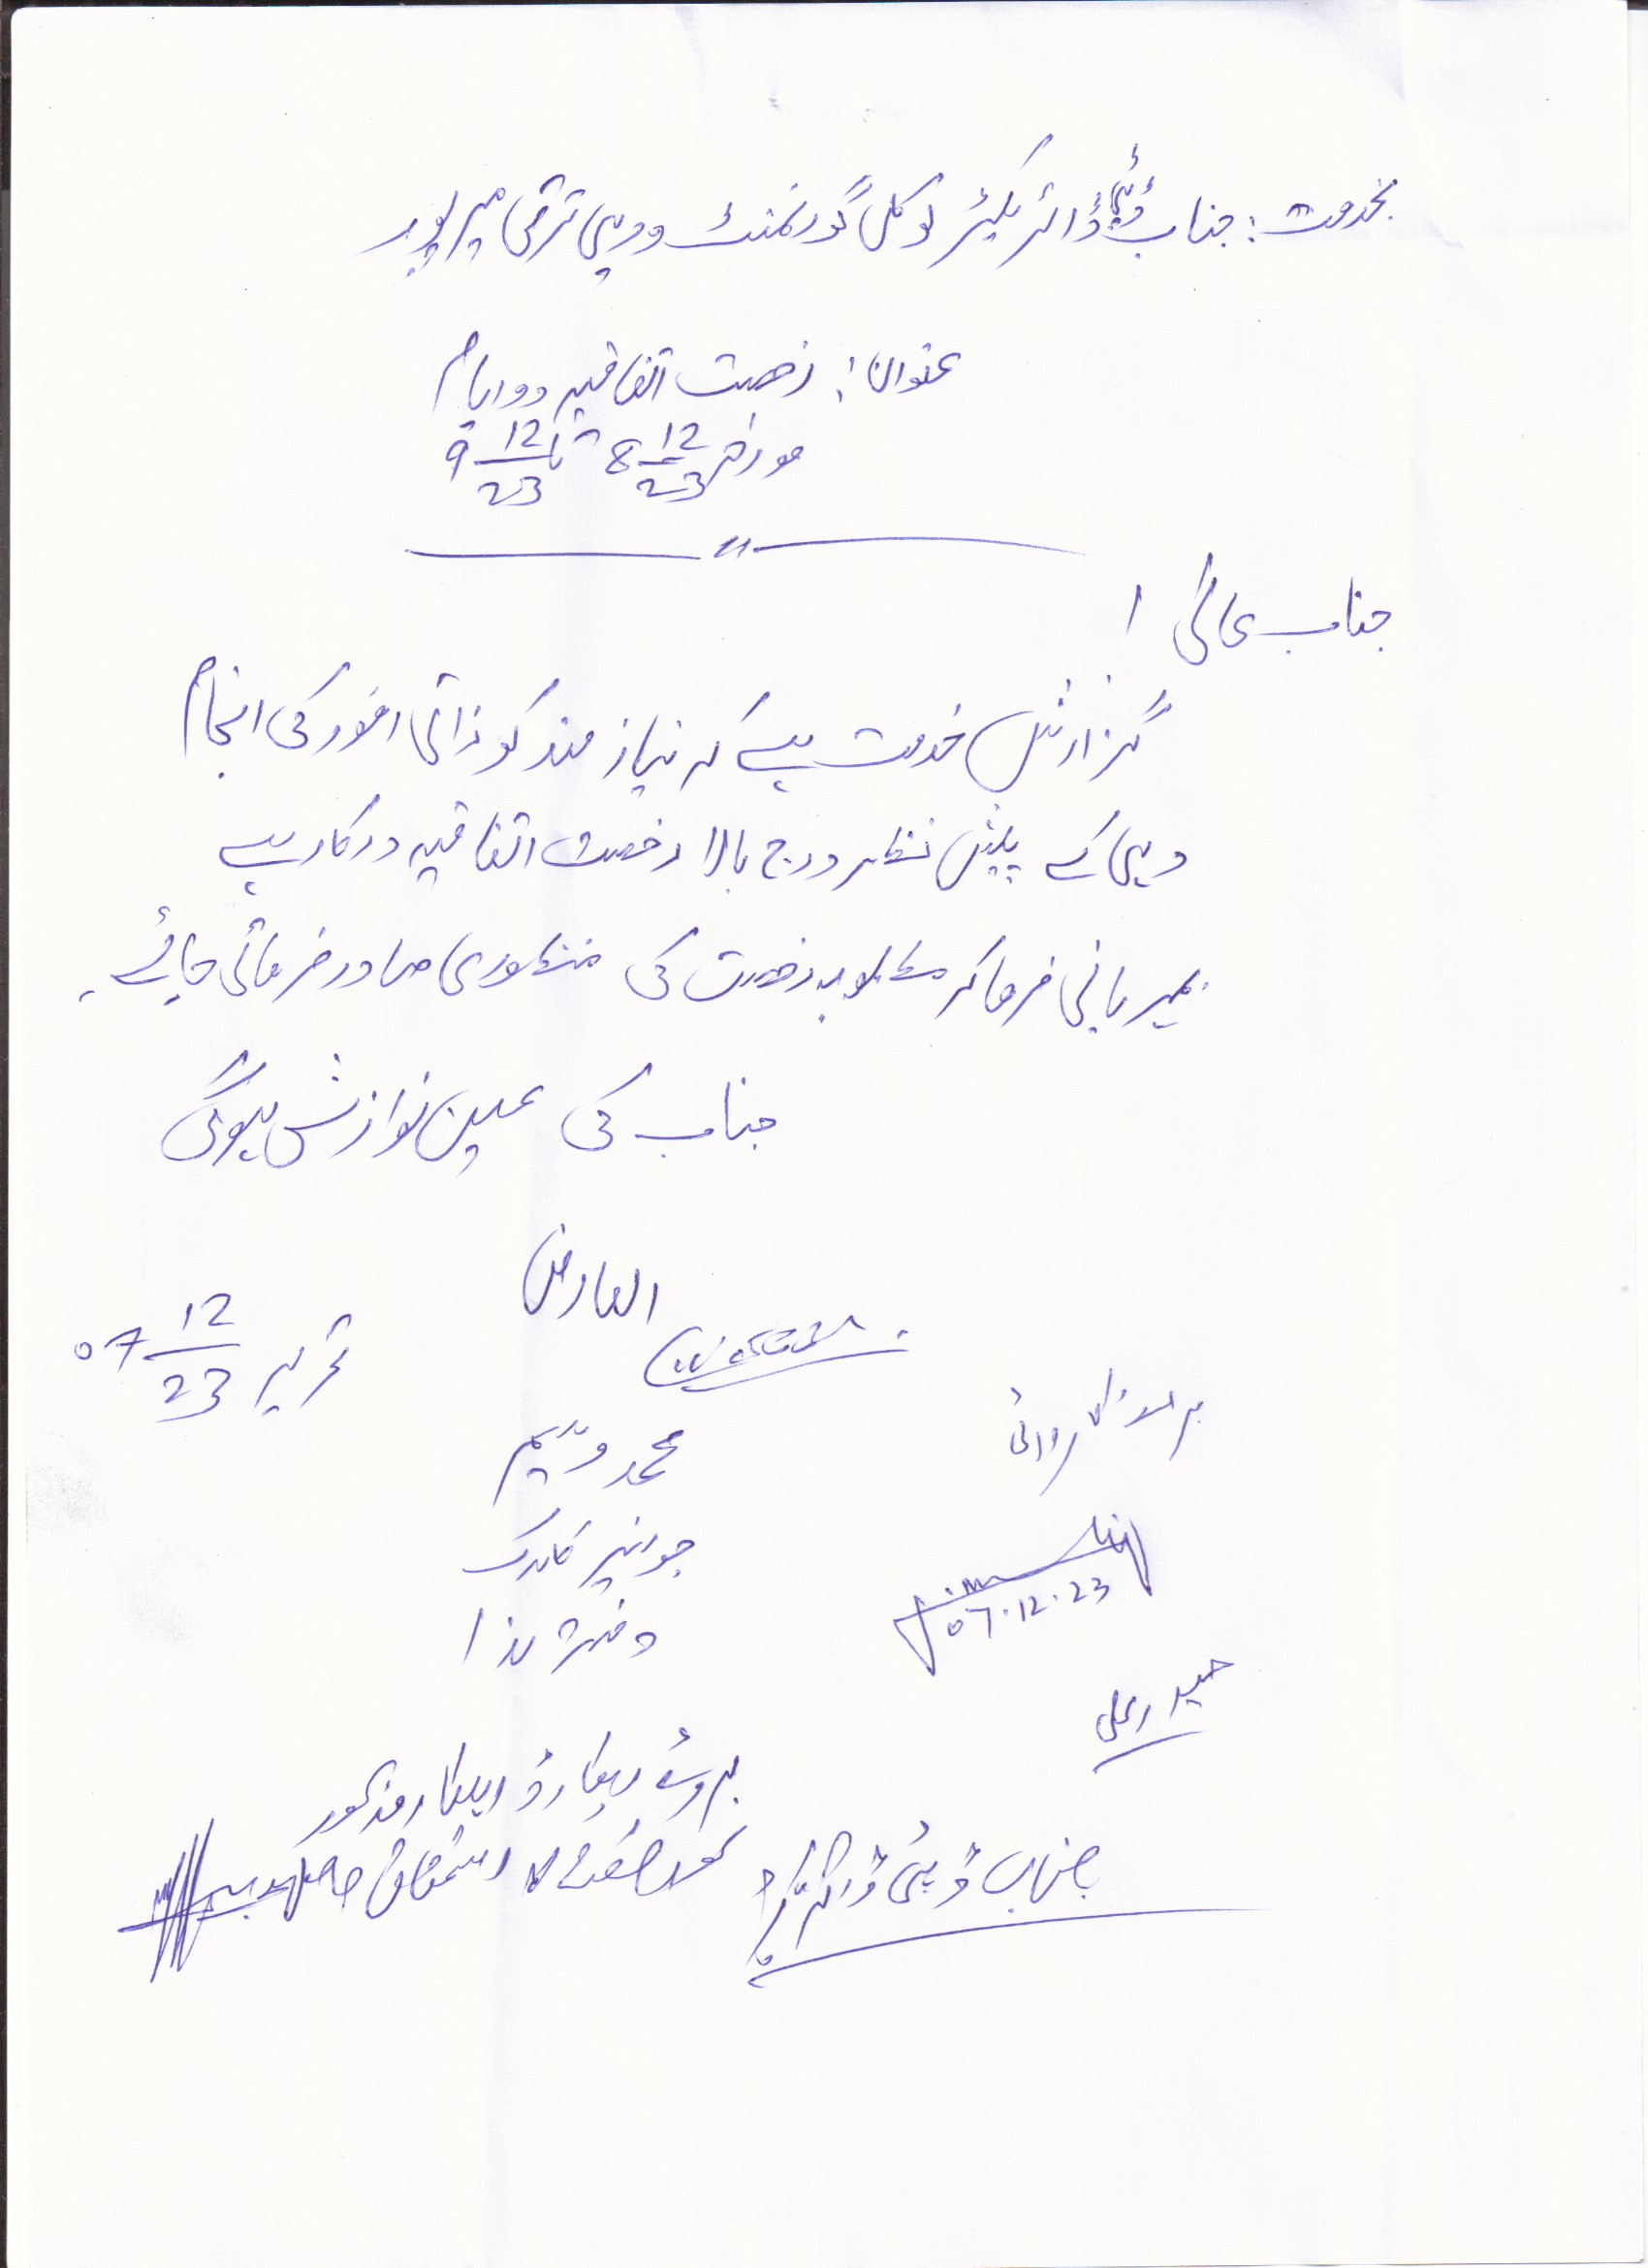 بخدمت: جناب ڈپٹی ڈائریکٹر لوکل گورنمنٹ و دیہی ترقی میرپور
عنوان: رخصت اتفاقیہ دو ایام
مورخہ 8-12-23 تا 9-12-23
جناب عالی!
گزارش خدمت ہے کہ نیاز مند کو ذاتی امور کی انجام
دہی کے پیش نظر درج بالا رخصت اتفاقیہ درکار ہے
مہربانی فرما کر مطلوبہ رخصت کی منظوری صادر فرمائی جائے۔
جناب کی عین نوازش ہوگی
العارض
تحریر 07-12-23
محمد وسیم
جونیئر کلرک
دفتر ہذا
07.12.23
حیدر علی
بروئے ریکارڈ اہلکار مذکور
کو رخصت کا استحقاق حاصل ہے
جناب ڈپٹی ڈائریکٹر